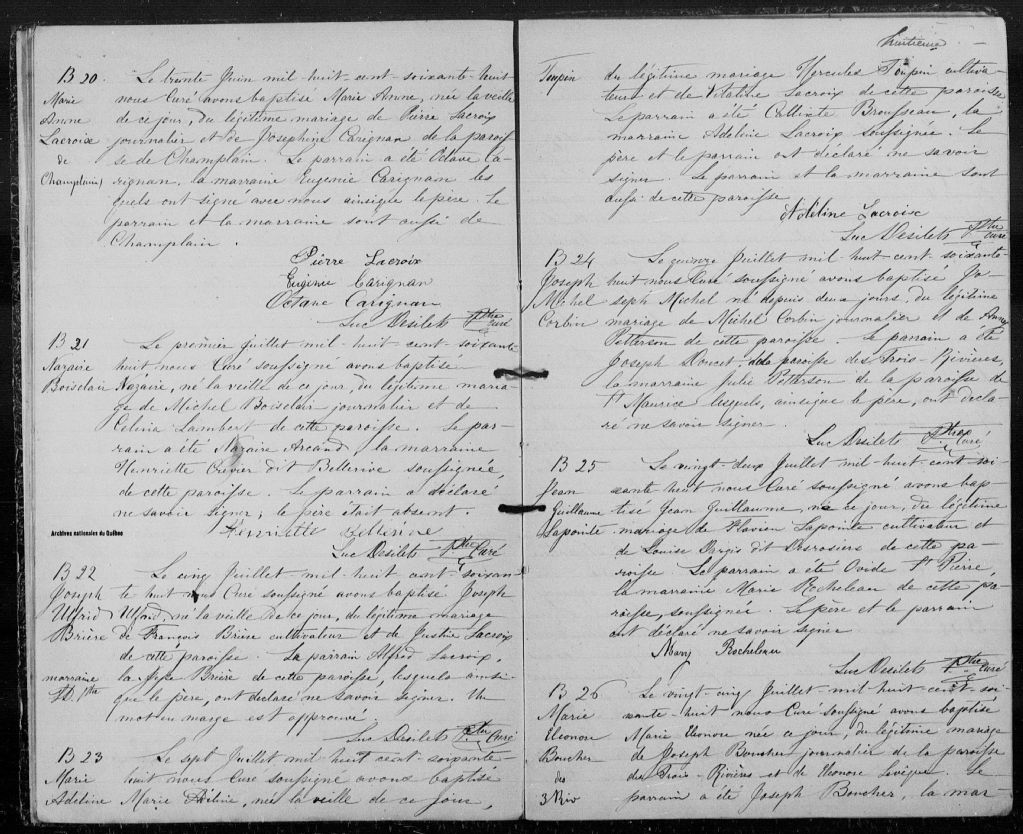 B 20. Le trente Juin mil-huit-cent-soixante-huit
Marie nous Curé avons baptisé Marie Anne, née la veille
Anne de ce jour, du légitime mariage de Pierre Lacroix
Lacroix journalier et de Josephine Carignan de la parois
de se de Champlain. Le parrain a été Octave Ca-
Champlain) rignan, la marraine Eugenie Carignan les
quels ont signé avec nous ainsi que le père. Le
parrain et la marraine sont aussi de
Champlain.
Pierre Lacroix
Eugenie Carignan
Octave Carignan
Luc Desilets Ptre Curé
B 21 Le premier Juillet mil huit cent soixante
Nazaire huit nous Curé soussigné avons baptisé
Boisclair Nazaire, né la veille de ce jour, du légitime maria-
ge de Michel Boisclair journalier et de
Celina Lambert de cette paroisse. Le par-
rain a été Nazaire Arcand la marraine
Henriette Cuvier dit Bellerive soussignée
de cette paroisse. Le parrain a déclaré
ne savoir signer, le père était absent.
Archives nationales du Québec
Henriette
Luc Desilets Ptre Curé
B 22 Le cinq Juillet mil-huit cent-soixan-
Joseph te huit nous Curé soussigné avons baptisé Joseph
Ulfrid né la veille de ce jour, du légitime mariage
Brière de François Brière cultivateur et de Justine Lacroix
de cette paroisse. Le parrain Alfred Lacroix,
marraine la Brière de cette paroisse, lesquels ainsi
L.D. Ptre que le père, ont déclaré ne savoir signer. Un
mot en marge est approuvé
Luc Desilets Ptre Curé
B 23 Le sept Juillet mil huit cent-soixante-
Marie huit nous Curé soussigné avons baptisé
Adeline Marie Adeline, née la veille de ce jour,
huitième
Toupin du légitime mariage Hercules Toupin cultiva-
teur et de Vitaline Lacroix de cette paroisse
Le parrain a été Callixte Brousseau, la
marraine Adeline Lacroix soussignée. Le
père et le parrain ont déclaré ne savoir
signer. Le parrain et la marraine sont
aussi de cette paroisse
Adeline Lacroix
Luc Desilets Ptre Curé
B 24 Le quinze Juillet mil huit cent soixante-
Joseph huit nous Curé soussigné avons baptisé Jo-
Michel seph Michel né depuis deux jours, du légitime
Corbin mariage de Michel Corbin journalier et de Anne
Petterson de cette paroisse. Le parrain a été
Joseph Doucet de la paroisse des Trois-Rivières,
la marraine Julie Petterson de la paroisse de
St Maurice lesquels, ainsi que le père, ont décla-
ré ne savoir signer.
Luc Desilets Ptre Curé
B 25 Le vingt-deux Juillet mil huit-cent-soi-
Jean xante huit nous Curé soussigné avons bap-
Guillaume tisé Jean Guillaume, né ce jour, du légitime
Lapointe mariage de Flavien Lapointe cultivateur et
de Louise Vergis dit Desrosiers de cette pa-
roisse Le parrain a été Ovide St Pierre,
la marraine Marie Rocheleau de cette pa-
roisse, soussignée. Le père et le parrain
ont déclaré ne savoir signer
Mary Rocheleau
Luc Desilets Ptre Curé
B 26 Le vingt-cinq Juillet mil huit cent-soi-
Marie xante-huit nous Curé soussigné avons baptisé
Eleonore Marie Eleonore née ce jour, du légitime mariage
Boucher de Joseph Boucher journalier de la paroisse
des des Trois-Rivières et de Eleonore Levêque. Le
3 Riv parrain a été Joseph Boucher, la mar-